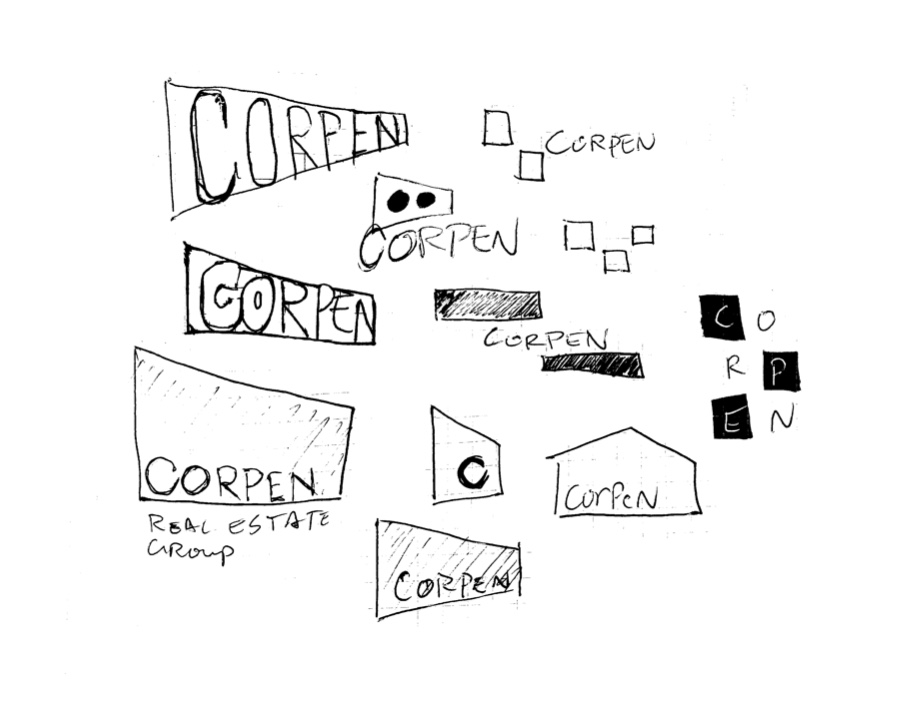 CORPEN
CORPEN
CORPEN
CORPEN
CORPEN
C O
R P
E N
CORPEN
REAL ESTATE
GROUP
C
CORPEN
CORPEN